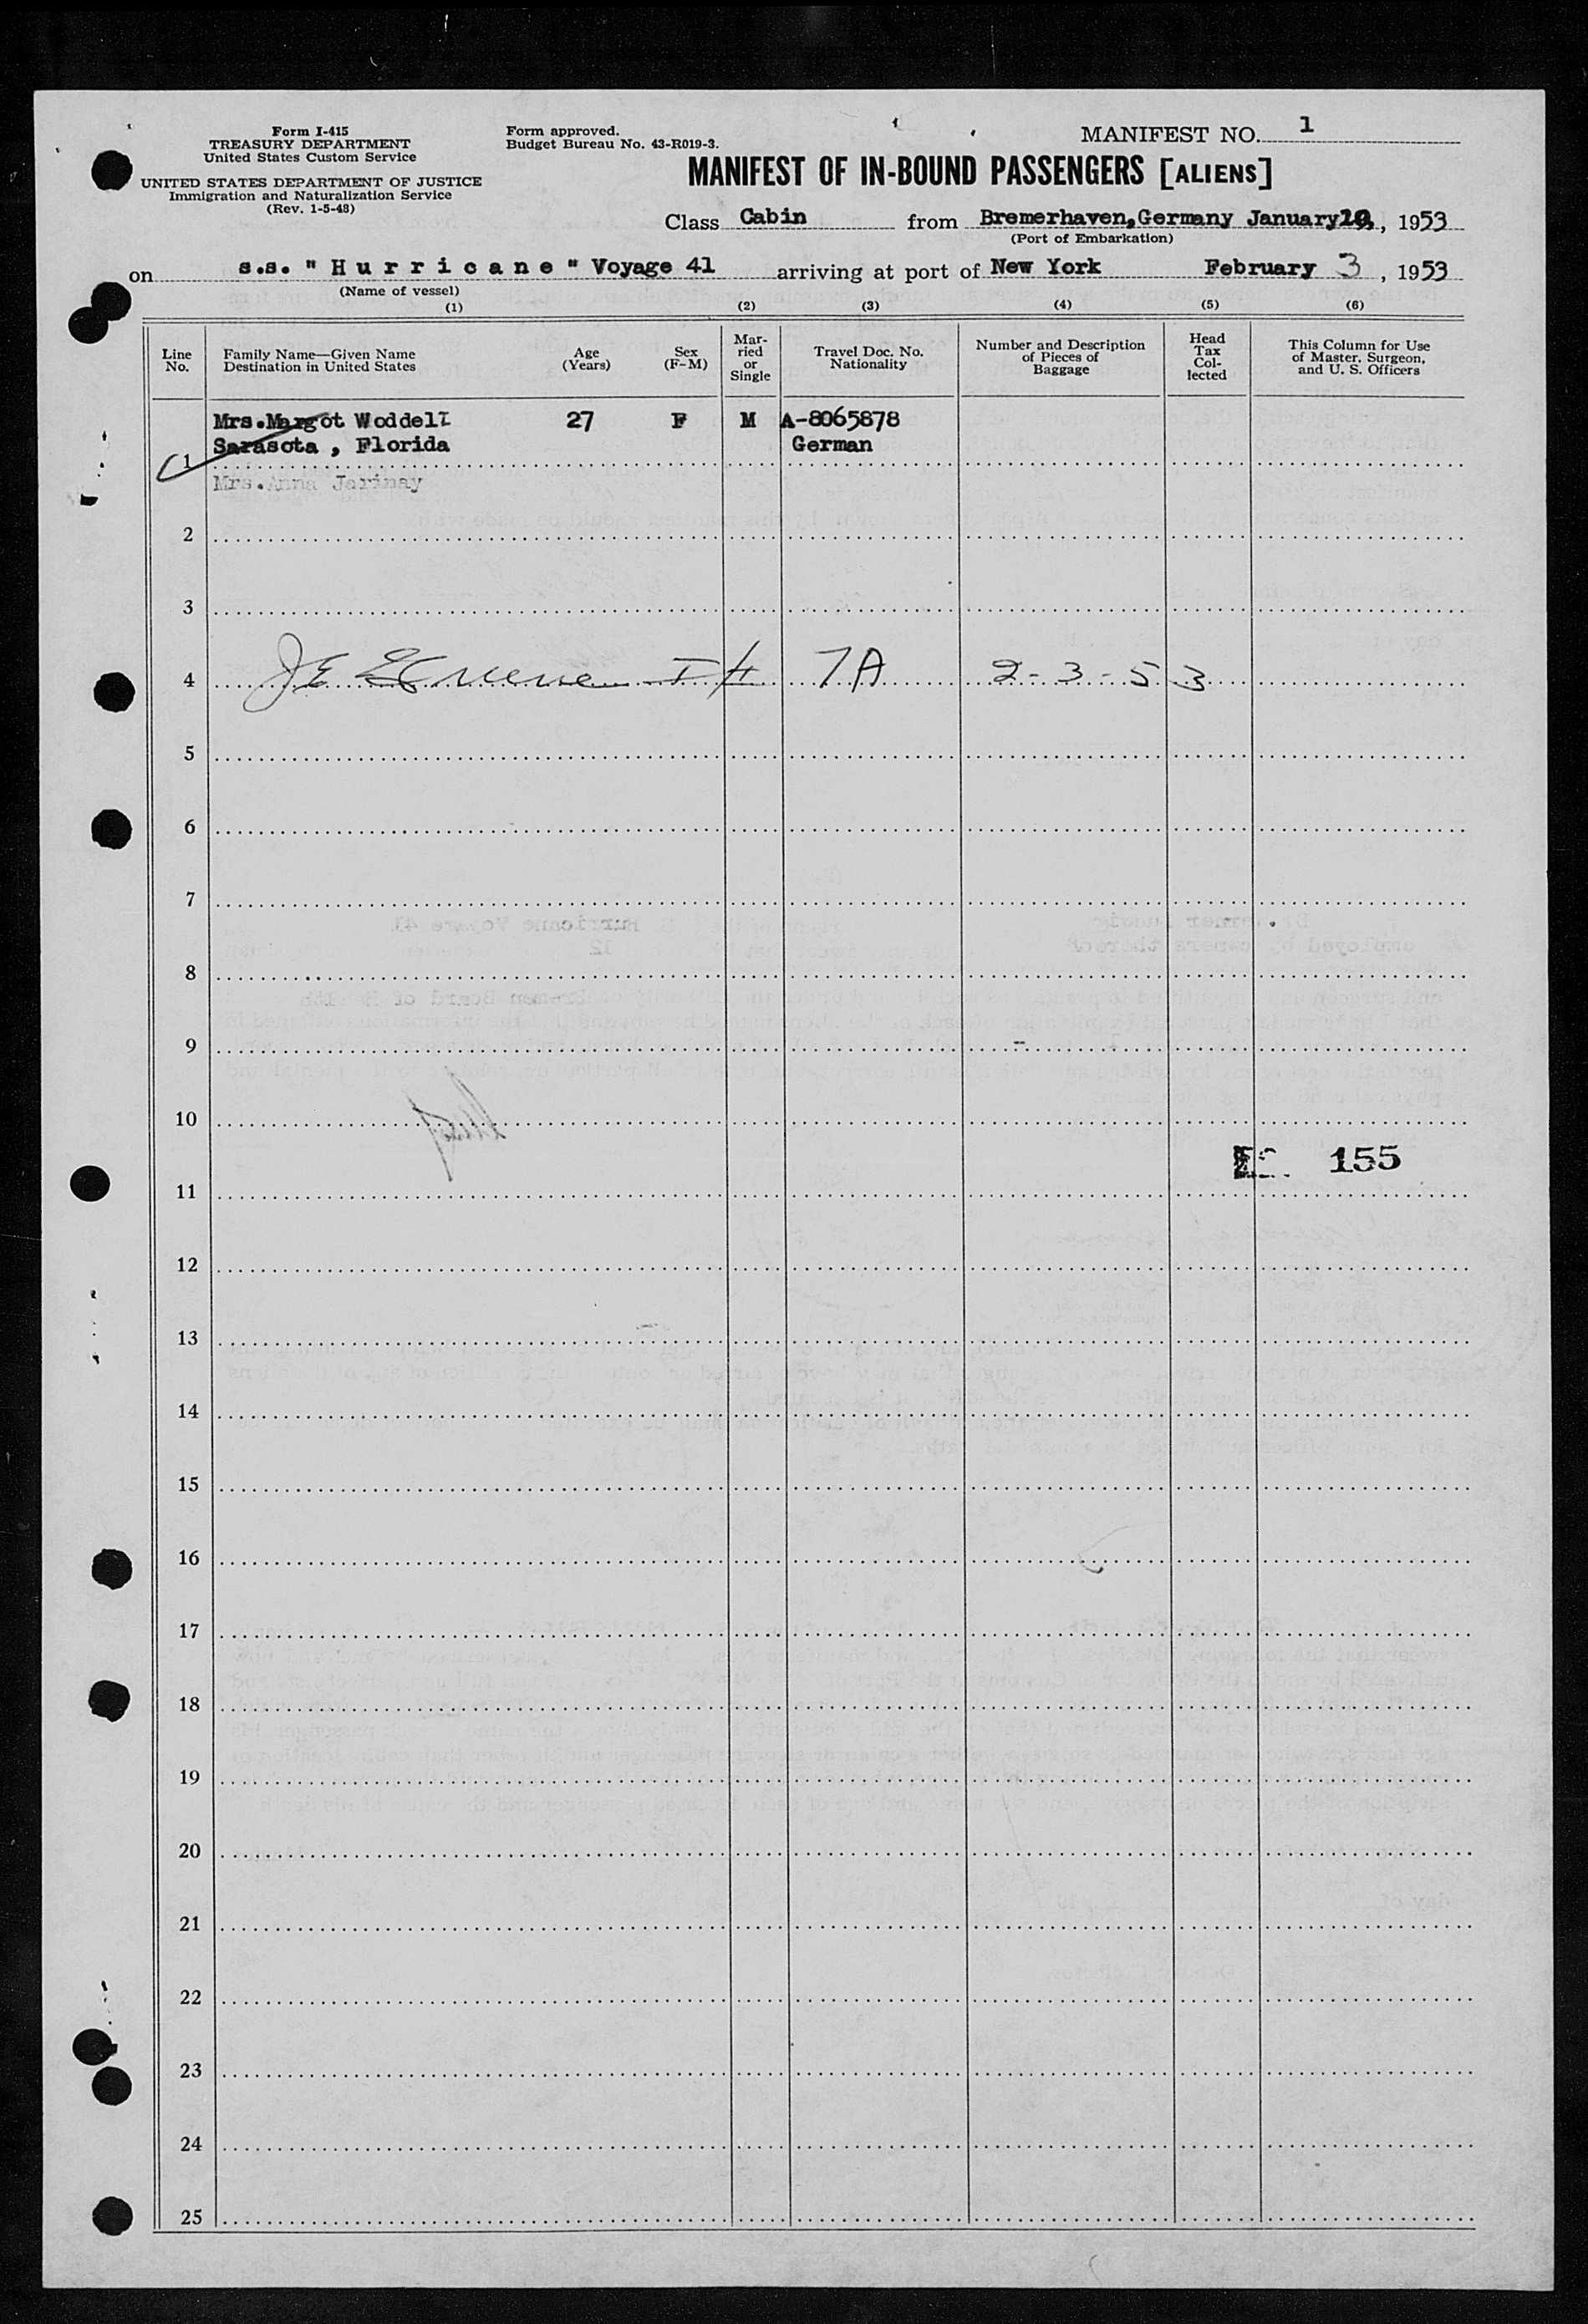 Form I-415
TREASURY DEPARTMENT
United States Custom Service
UNITED STATES DEPARTMENT OF JUSTICE
Immigration and Naturalization Service
(Rev. 1-5-48)
Form approved.
Budget Bureau No. 43-R019-3.
MANIFEST NO. 1
MANIFEST OF IN-BOUND PASSENGERS [ALIENS]
Class Cabin from Bremerhaven, Germany January , 1953
(Port of Embarkation)
on s.s. " H u r r i c a n e " Voyage 41 arriving at port of New York February 3 , 1953
(Name of vessel)
(1) (2) (3) (4) (5) (6)
Line No. Family Name—Given Name Destination in United States Age (Years) Sex (F-M) Mar-ried or Single Travel Doc. No. Nationality Number and Description of Pieces of Baggage Head Tax Col-lected This Column for Use of Master, Surgeon, and U. S. Officers
Mrs.Margot Woddell 27 F M A-8065878
Sarasota , Florida German
1
Mrs.Anna Jarinay
2
3
4 7A 2-3-53
5
6
7
8
9
10
155
11
12
13
14
15
16
17
18
19
20
21
22
23
24
25